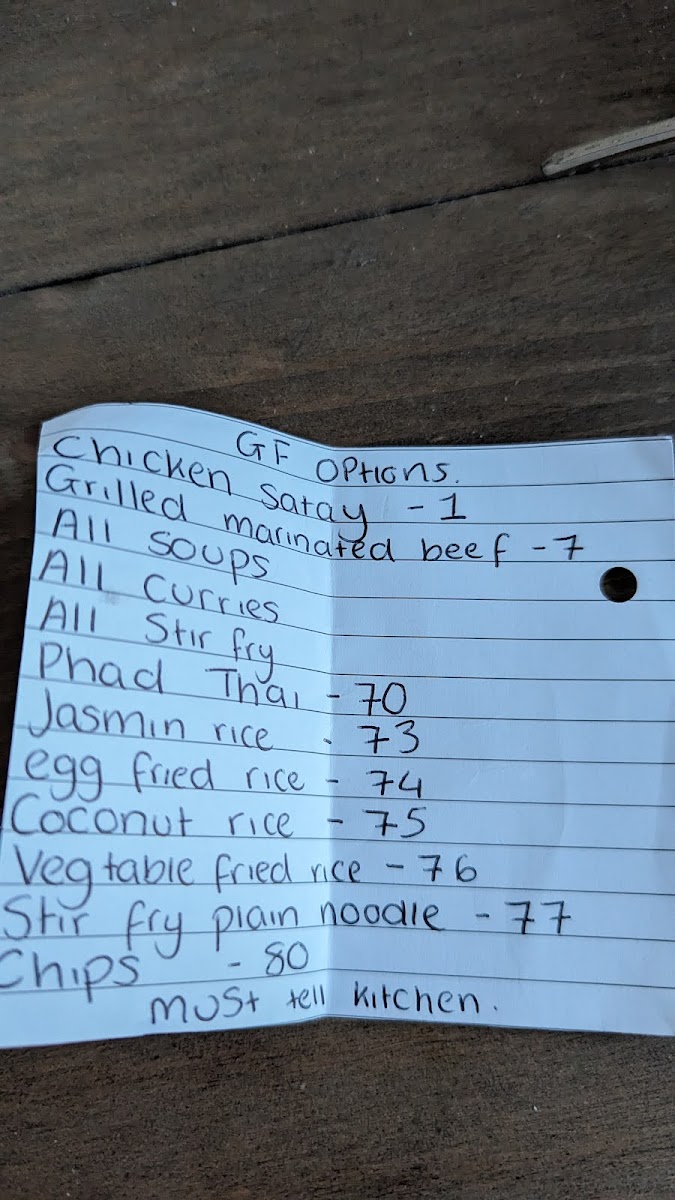 GF Options.
Chicken satay - 1
Grilled marinated beef - 7
All soups
All Curries
All Stir fry
Phad Thai - 70
Jasmin rice - 73
egg fried rice - 74
Coconut rice - 75
Vegtable fried rice - 76
Stir fry plain noodle - 77
Chips - 80
must tell kitchen.